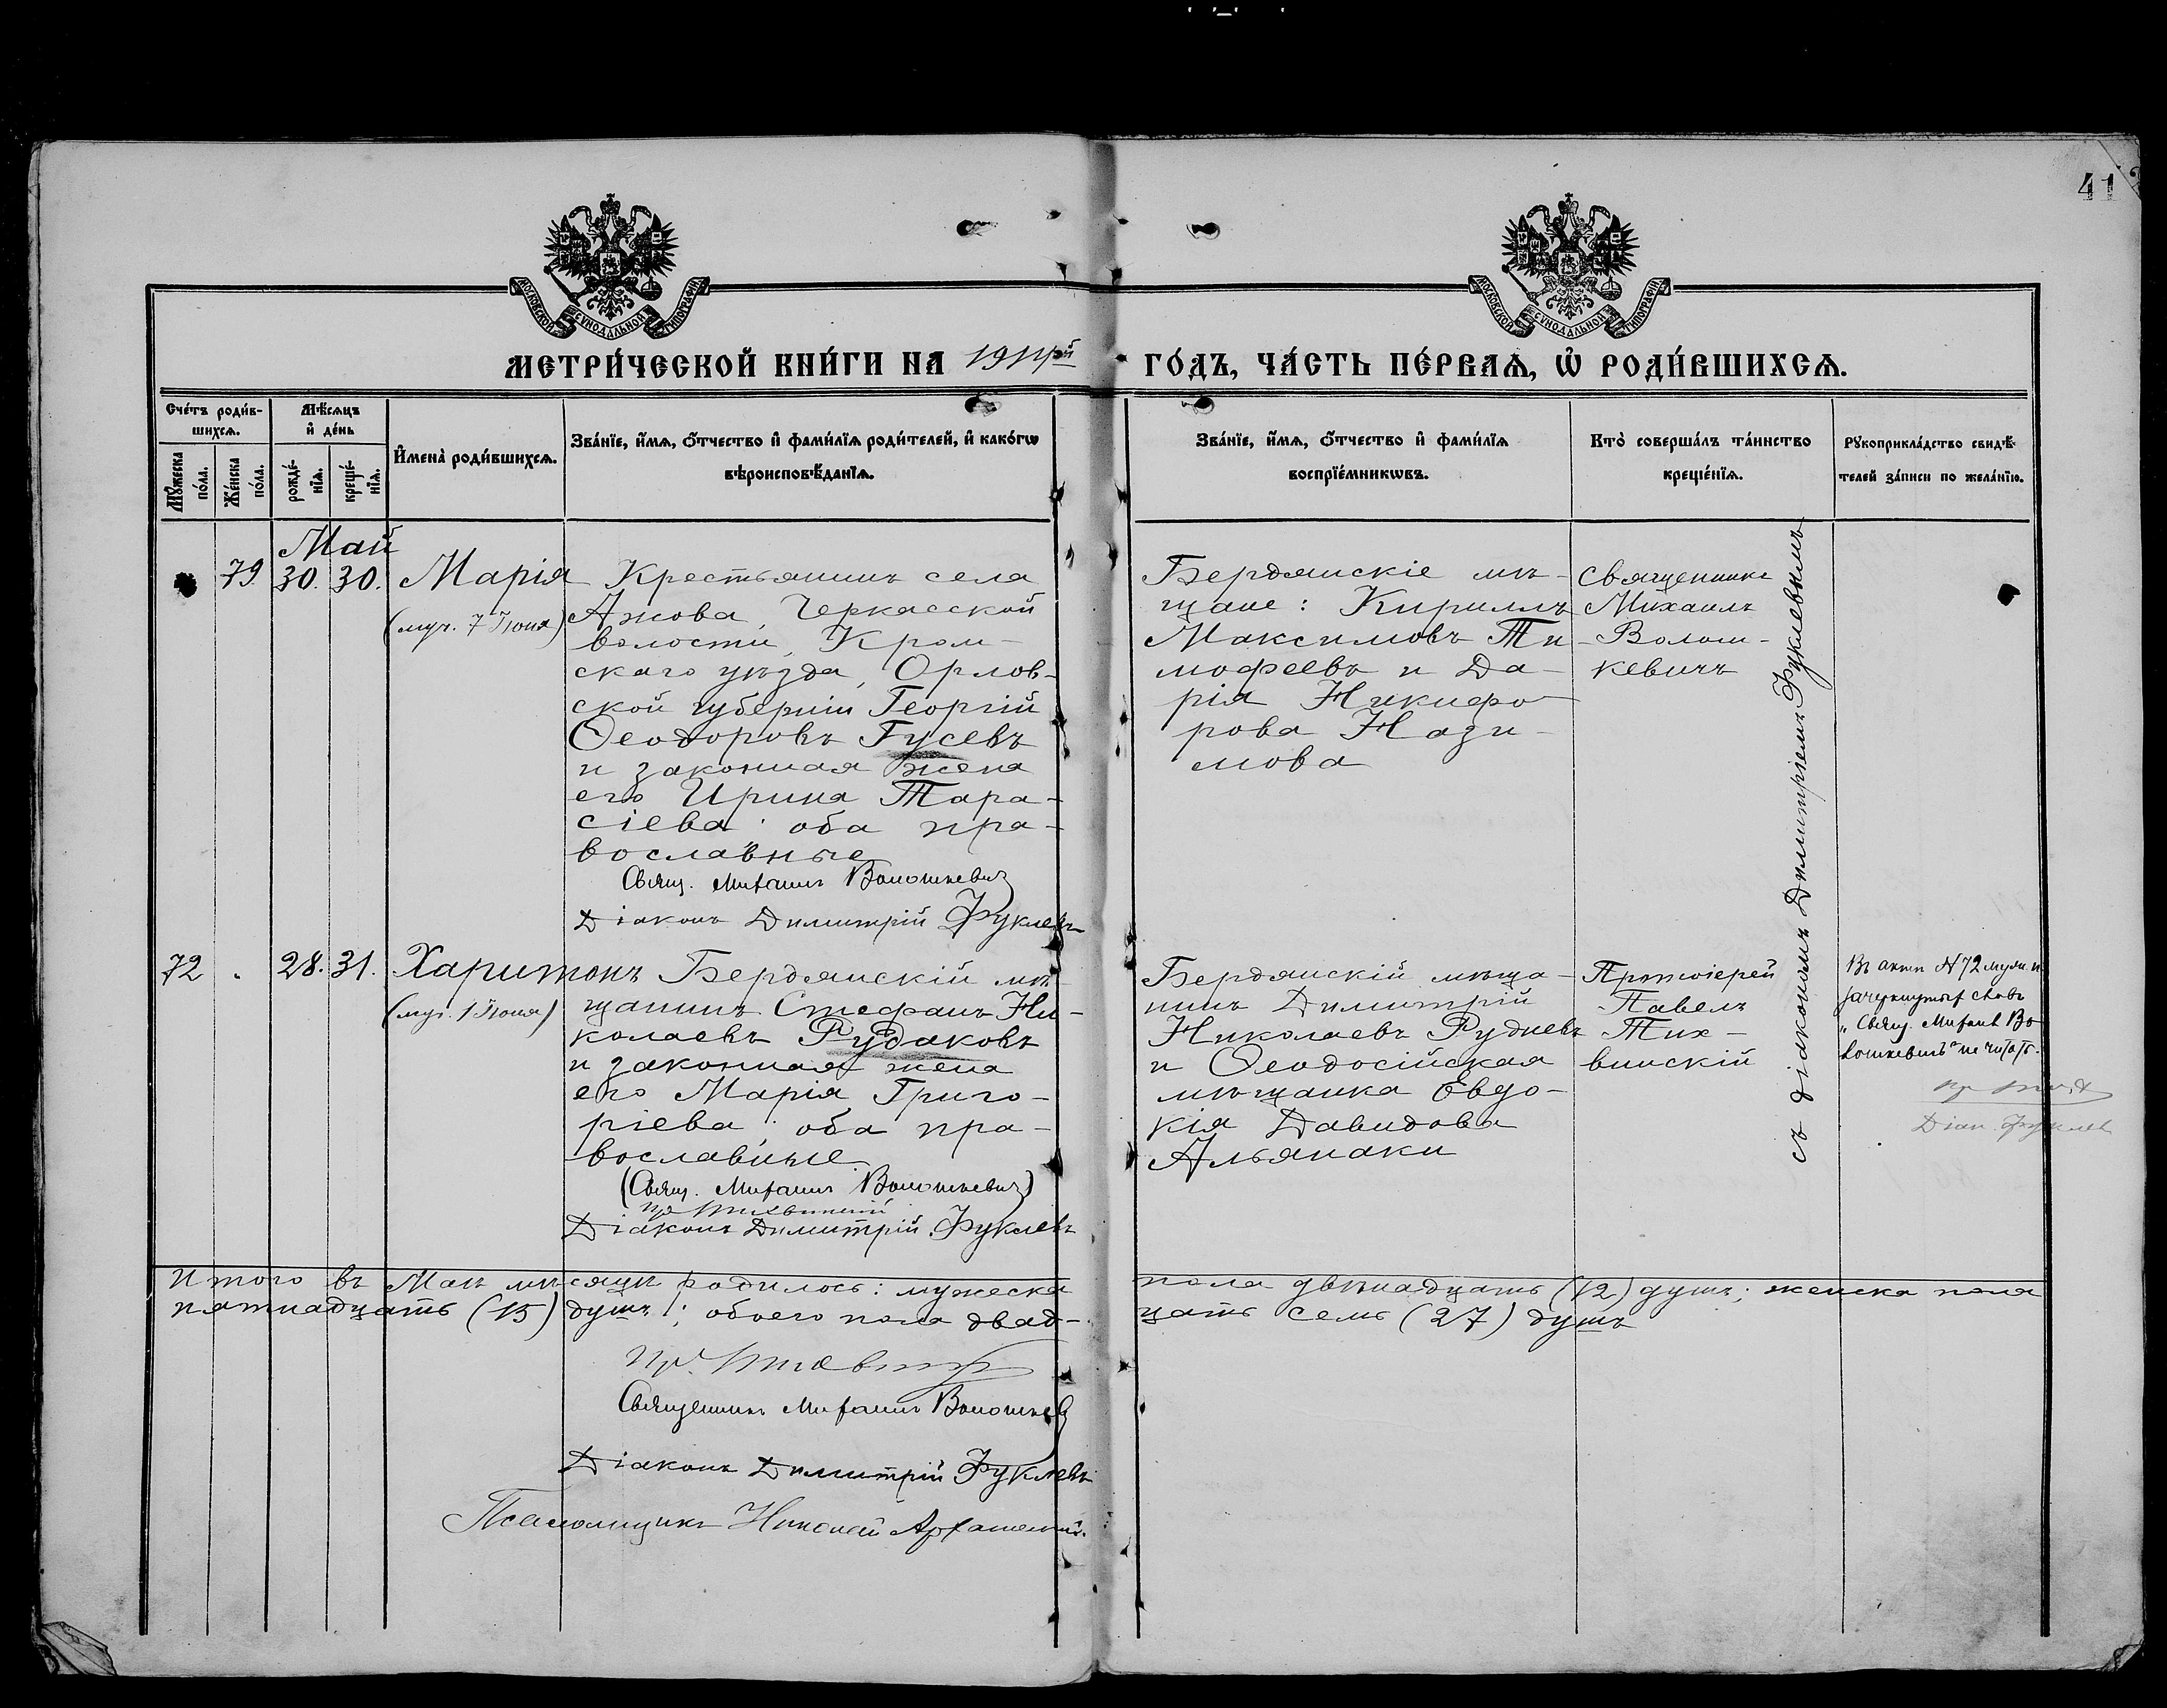 41
МОСКОВСКОЙ СѴНОДАЛЬНОЙ ТИПОГРАФІИ
МОСКОВСКОЙ СѴНОДАЛЬНОЙ ТИПОГРАФІИ
МЕТРИ́ЧЕСКОЙ КНИ́ГИ НА 1914й ГО́ДЪ, ЧА́СТЬ ПЕ́РВАѦ, Ѡ҆ РОДИ́ВШИХСѦ.
Сче́тъ роди́в-
шихсѧ.
Мꙋ́жеска по́ла.
Же́нска по́ла.
Мѣ́сѧцъ
и҆ де́нь
рожде́-
нїѧ.
креще́-
нїѧ.
И҆мена̀ роди́вшихсѧ.
Зва́нїе, и҆́мѧ, ѻ҆́тчество и҆ фами́лїѧ роди́телей, и҆ како́гѡ
вѣроисповѣ́данїѧ.
Зва́нїе, и҆́мѧ, ѻ҆́тчество и҆ фами́лїѧ
воспрїе́мникѡвъ.
Кто̀ соверша́лъ та́инство
креще́нїѧ.
Рꙋкоприкла́дство свидѣ́-
телей за́писи по жела́нїю.
Май
79. 30. 30.
Марія
(муч. 7 Іюня)
Крестьянинъ села
Ажова, Черкасской
волости, Кром-
скаго уѣзда, Орлов-
ской губерніи Георгій
Ѳеодоровъ Гусевъ
и законная жена
его Ирина Тара-
сіева; оба пра-
вославные
Свящ. Михаилъ Волошкевич
Діаконъ Димитрій Фуклевъ
Бердянскіе мѣ-
щане: Кириллъ
Максимовъ Ти-
мофеевъ и Да-
рія Никифо-
рова Нази-
мова
Священникъ
Михаилъ
Волош-
кевичъ
съ діакономъ Димитріемъ Фуклевымъ
72 . 28. 31.
Харитонъ
(муч. 1 Іюня)
Бердянскій мѣ-
щанинъ Стефанъ Ни-
колаевъ Рудаковъ
и законная жена
его Марія Григо-
ріева; оба пра-
вославные
(Свящ. Михаилъ Волошкевич)
пр. Тихвинскій
Діаконъ Димитрій Фуклевъ
Бердянскій мѣща-
нинъ Димитрій
Николаевъ Рудневъ
и Ѳеодосійская
мѣщанка Евдо-
кія Давидова
Альянаки
Протоіерей
Павелъ
Тих-
винскій
Въ актѣ № 72 муж. п.
зачеркнутыхъ словъ
„Свящ. Михаилъ Во-
лошкевичъ“ не читать.
Діак. Фуклев
Итого въ Маѣ мѣсяцѣ родилось: мужеска пола двѣнадцать (12) душъ; женска пола
пятнадцать (15) душъ; обоего пола двад-цать семь (27) душъ
пр. Тихвинскій
Священникъ Михаилъ Волошкев
Діаконъ Димитрій Фуклевъ
Псаломщикъ Николай